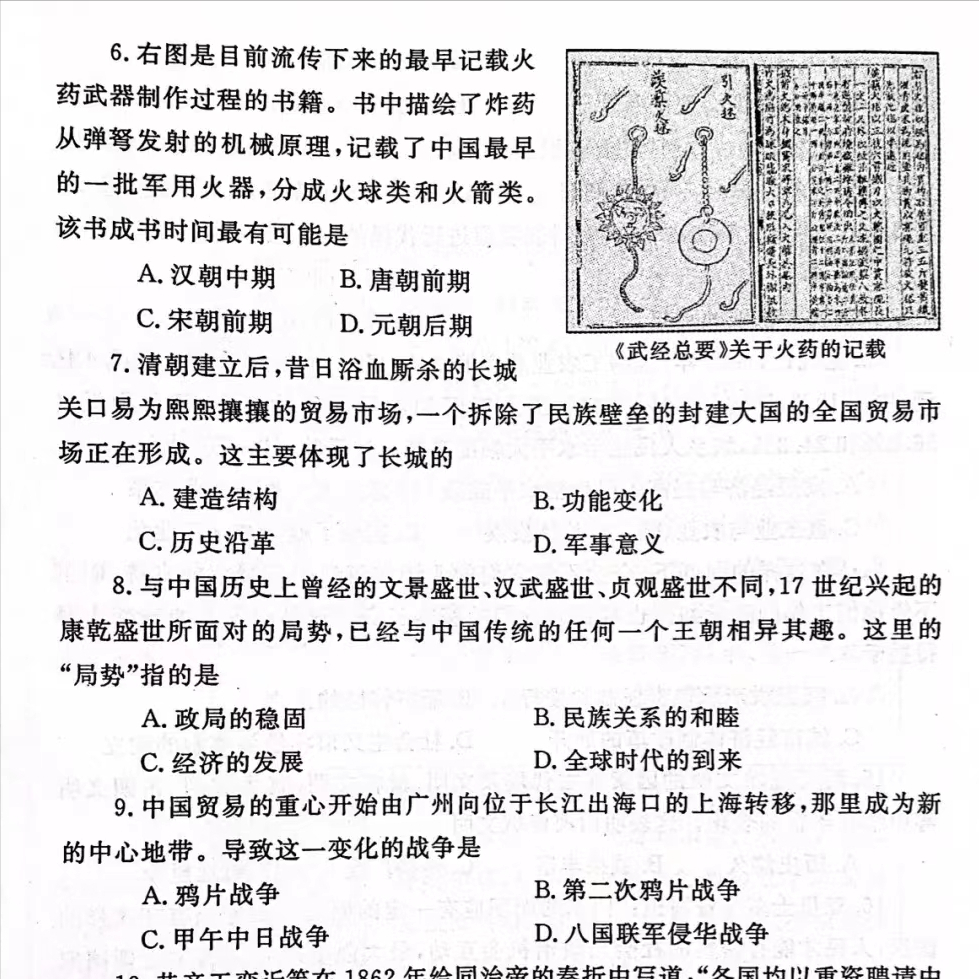 6. 右图是目前流传下来的最早记载火
药武器制作过程的书籍。书中描绘了炸药
从弹弩发射的机械原理,记载了中国最早
的一批军用火器,分成火球类和火箭类。
该书成书时间最有可能是
A. 汉朝中期 B. 唐朝前期
C. 宋朝前期 D. 元朝后期
引火毬
蒺藜火毬
《武经总要》关于火药的记载
7. 清朝建立后,昔日浴血厮杀的长城
关口易为熙熙攘攘的贸易市场,一个拆除了民族壁垒的封建大国的全国贸易市
场正在形成。这主要体现了长城的
A. 建造结构 B. 功能变化
C. 历史沿革 D. 军事意义
8. 与中国历史上曾经的文景盛世、汉武盛世、贞观盛世不同,17 世纪兴起的
康乾盛世所面对的局势,已经与中国传统的任何一个王朝相异其趣。这里的
“局势”指的是
A. 政局的稳固 B. 民族关系的和睦
C. 经济的发展 D. 全球时代的到来
9. 中国贸易的重心开始由广州向位于长江出海口的上海转移,那里成为新
的中心地带。导致这一变化的战争是
A. 鸦片战争 B. 第二次鸦片战争
C. 甲午中日战争 D. 八国联军侵华战争
10. 恭亲王奕䜣等在 1862 年给同治帝的奏折中写道:“各国均以重资聘请中